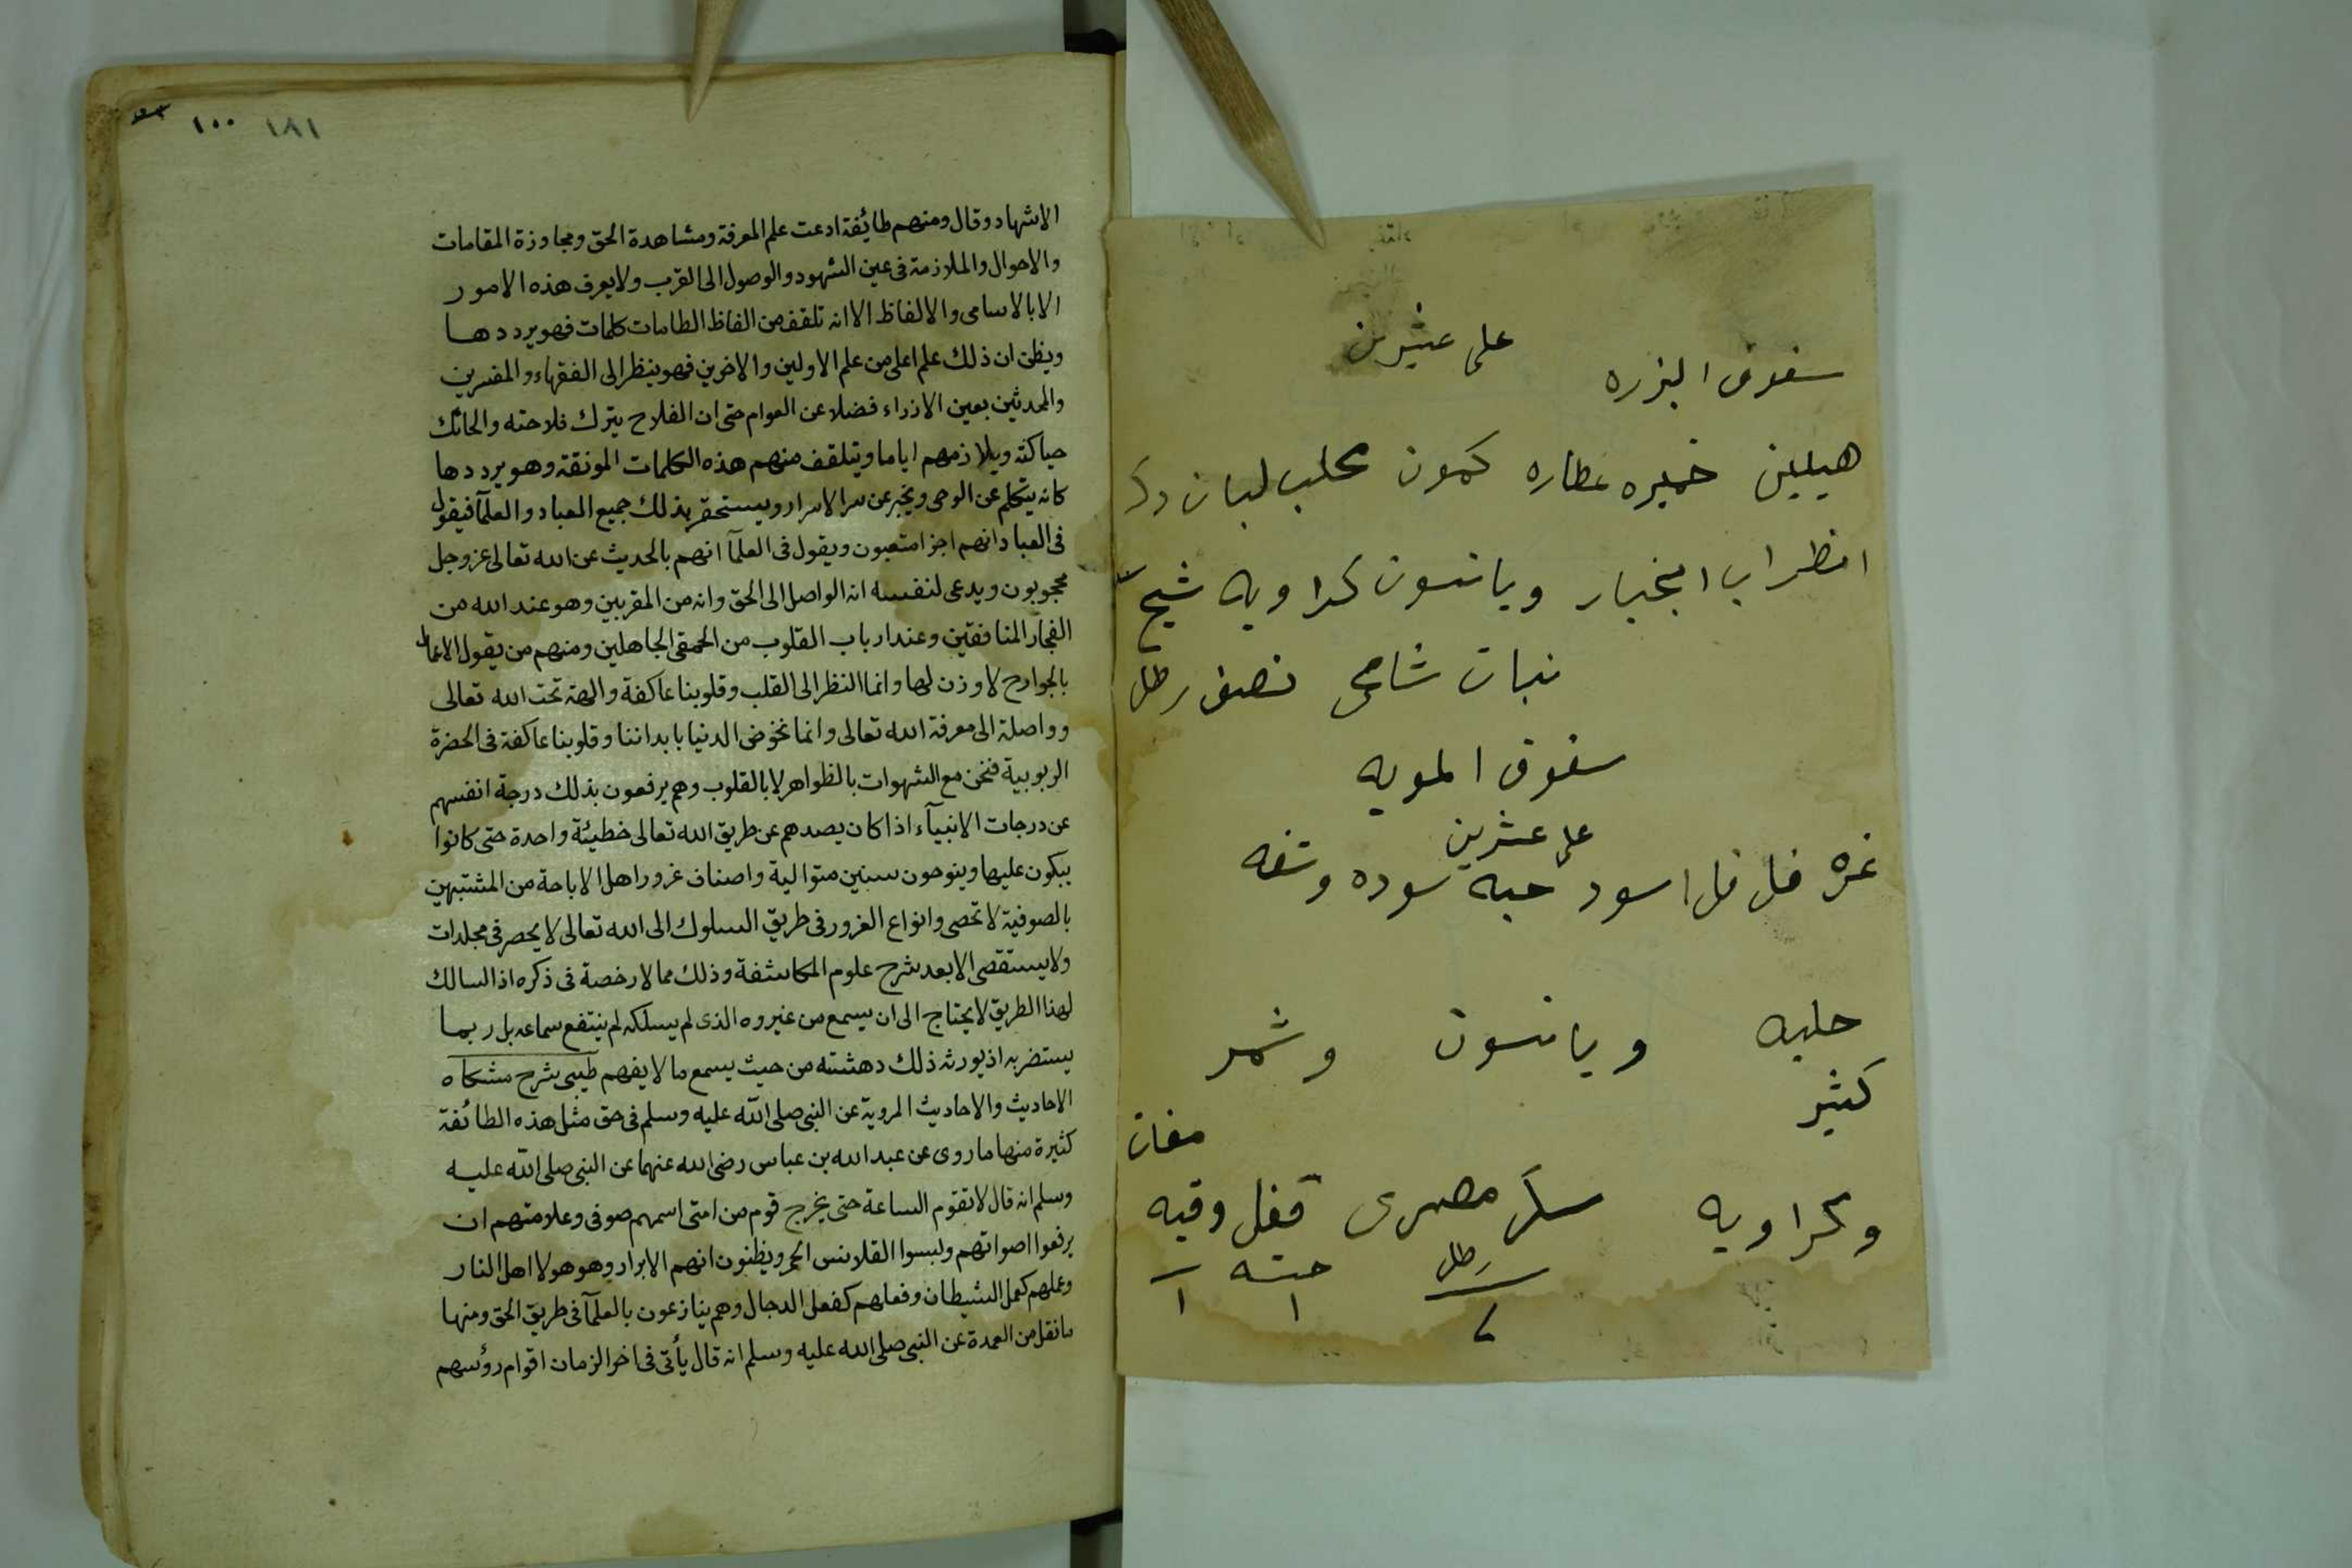 ١٨١ ١٠٠
الاشهاد وقال ومنهم طائفة ادعت علم المعرفة ومشاهدة الحق ومجاوزة المقامات
والاحوال والملازمة فى عين الشهود والوصول الى القرب ولا يعرف هذه الامور
الا بالاسامى والالفاظ الا انه تلقف من الفاظ الطامات كلمات فهو يرددها
ويظن ان ذلك علم اعلى من علم الاولين والاخرين فهو ينظر الى الفقهاء والمفسرين
والمحدثين بعين الازراء فضلا عن العوام حتى ان الفلاح يترك فلاحته والحائك
حياكته ويلازمهم اياما ويتلقف منهم هذه الكلمات المونقة وهو يرددها
كانه يتكلم عن الوحى ويخبر عن سر الاسرار ويستحقر بذلك جميع العباد والعلمآ فيقول
فى العباد انهم اجزا متعبون ويقول فى العلمآ انهم بالحديث عن الله تعالى عز وجل
محجوبون ويدعى لنفسه انه الواصل الى الحق وانه من المقربين وهو عند الله من
الفجار المنافقين وعند ارباب القلوب من الحمقى الجاهلين ومنهم من يقول الاعمال
بالجوارح لا وزن لها وانما النظر الى القلب وقلوبنا عاكفة والهة تحت الله تعالى
وواصلة الى معرفة الله تعالى وانما نخوض الدنيا بابداننا وقلوبنا عاكفة فى الحضرة
الربوبية فنحن مع الشهوات بالظواهر لا بالقلوب وهم يرفعون بذلك درجة انفسهم
عن درجات الانبيآء اذا كان يصدهم عن طريق الله تعالى خطيئة واحدة حتى كانوا
يبكون عليها وينوحون سنين متوالية واصناف غرور اهل الاباحة من المشتبهين
بالصوفية لا تحصى وانواع الغرور فى طريق السلوك الى الله تعالى لا يحصر فى مجلدات
ولا يستقصى الا بعد شرح علوم المكاشفة وذلك مما لا رخصة فى ذكره اذ السالك
لهذا الطريق لا يحتاج الى ان يسمع من غيره والذى لم يسلكه لم ينتفع بسماعه بل ربما
يستضر به اذ يورثه ذلك دهشته من حيث يسمع ما لا يفهم طيبى شرح مشكاه
الاحاديث والاحاديث المروية عن النبى صلى الله عليه وسلم فى حق مثل هذه الطائفة
كثيرة منها ما روى عن عبد الله بن عباس رضى الله عنهما عن النبى صلى الله عليه
وسلم انه قال لا تقوم الساعة حتى يخرج قوم من امتى اسمهم صوفى وعلامتهم ان
يرفعوا اصواتهم ولبسوا القلانس الحمر ويظنون انهم الابرار وهو هولا اهل النار
وعملهم كعمل الشيطان وفعلهم كفعل الدجال وهم ينازعون بالعلمآ فى طريق الحق ومنها
ما نقل من العمدة عن النبى صلى الله عليه وسلم انه قال يأتى فى اخر الزمان اقوام رؤسهم
على عشرين
سفوف البزره
هيليين خميره عطاره كمون محلب لبان دكر
انظراب انجبار ويانسون كراويه شيح
نبات شامى نصف رطل
سفوف المويه
على عشرين
غره فلفل اسود حبه سوده وشفه
حلبه ويانسون وشمر
كثير
مغات
وكراويه سكر مصرى قفل وقيه
رطل ٢ ١ ١